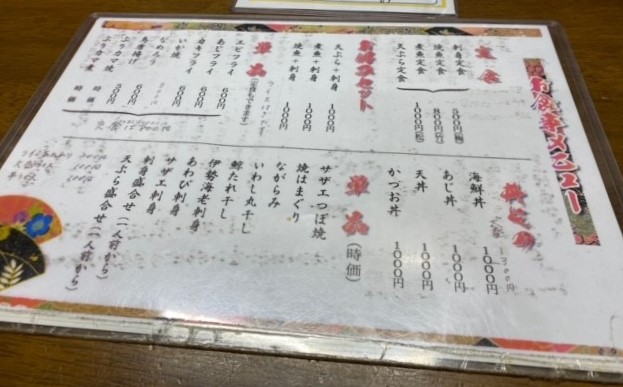 お食事メニュー
定食
刺身定食
煮魚定食
焼魚定食
天ぷら定食
800円
1000円
天ぷら+刺身 1000円
煮魚+刺身 1000円
焼魚+刺身 1000円
単品
(定食もできます)
エビフライ 600円
あじフライ 600円
カキフライ 600円
いか焼 600円
なめろう
鳥唐揚げ 500円
ぶりカマ焼 時価
ぶりカマ煮 時価
丼もの
海鮮丼 1000円
1300円
あじ丼 1000円
天丼 1000円
かつお丼 1000円
単品(時価)
サザエつぼ焼
焼はまぐり
ながらみ
いわし丸干し
鯨たれ干し
伊勢海老刺身
あわび刺身
サザエ刺身
刺身盛合せ(一人前から)
天ぷら盛合せ(一人前から)